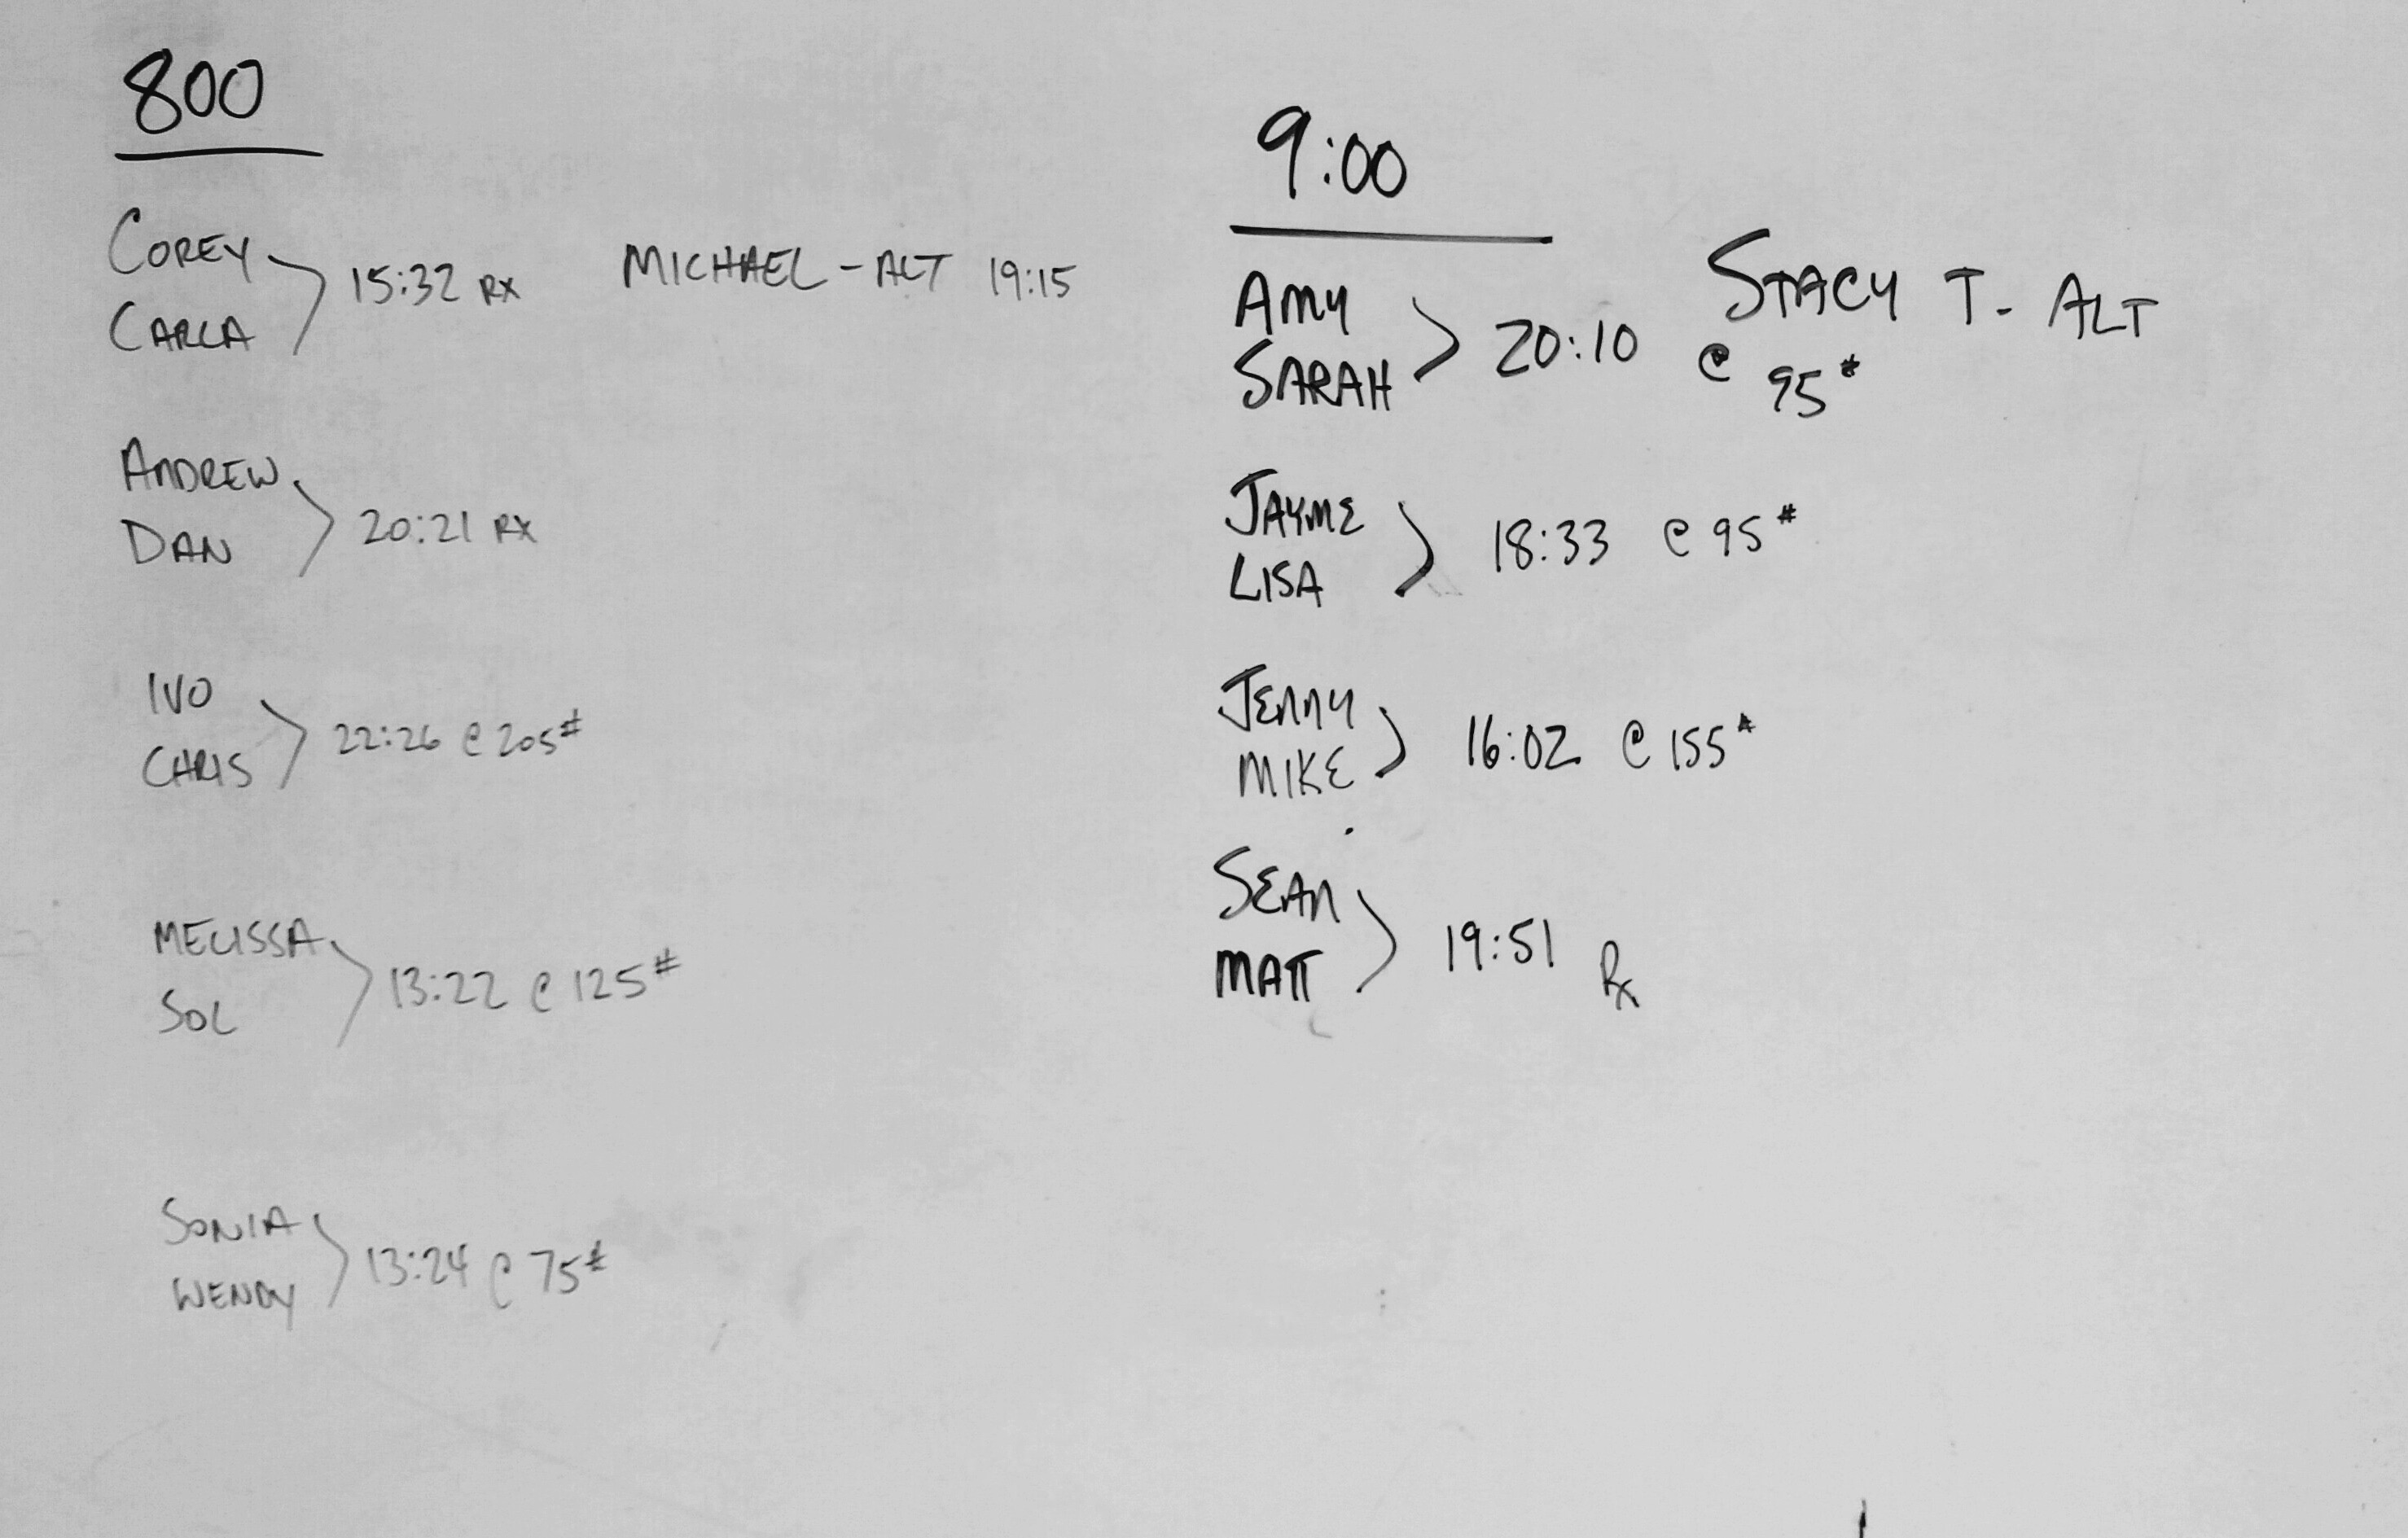 800
COREY
CARLA
15:32 RX
MICHAEL - ALT 19:15
ANDREW
DAN
20:21 RX
IVO
CHRIS
22:26 @ 205#
MELISSA
SOL
13:22 @ 125#
SONIA
WENDY
13:24 @ 75#
9:00
AMY
SARAH
20:10 @ 95#
STACY T - ALT
JAYME
LISA
18:33 @ 95#
JENNY
MIKE
16:02 @ 155#
SEAN
MATT
19:51 Rx